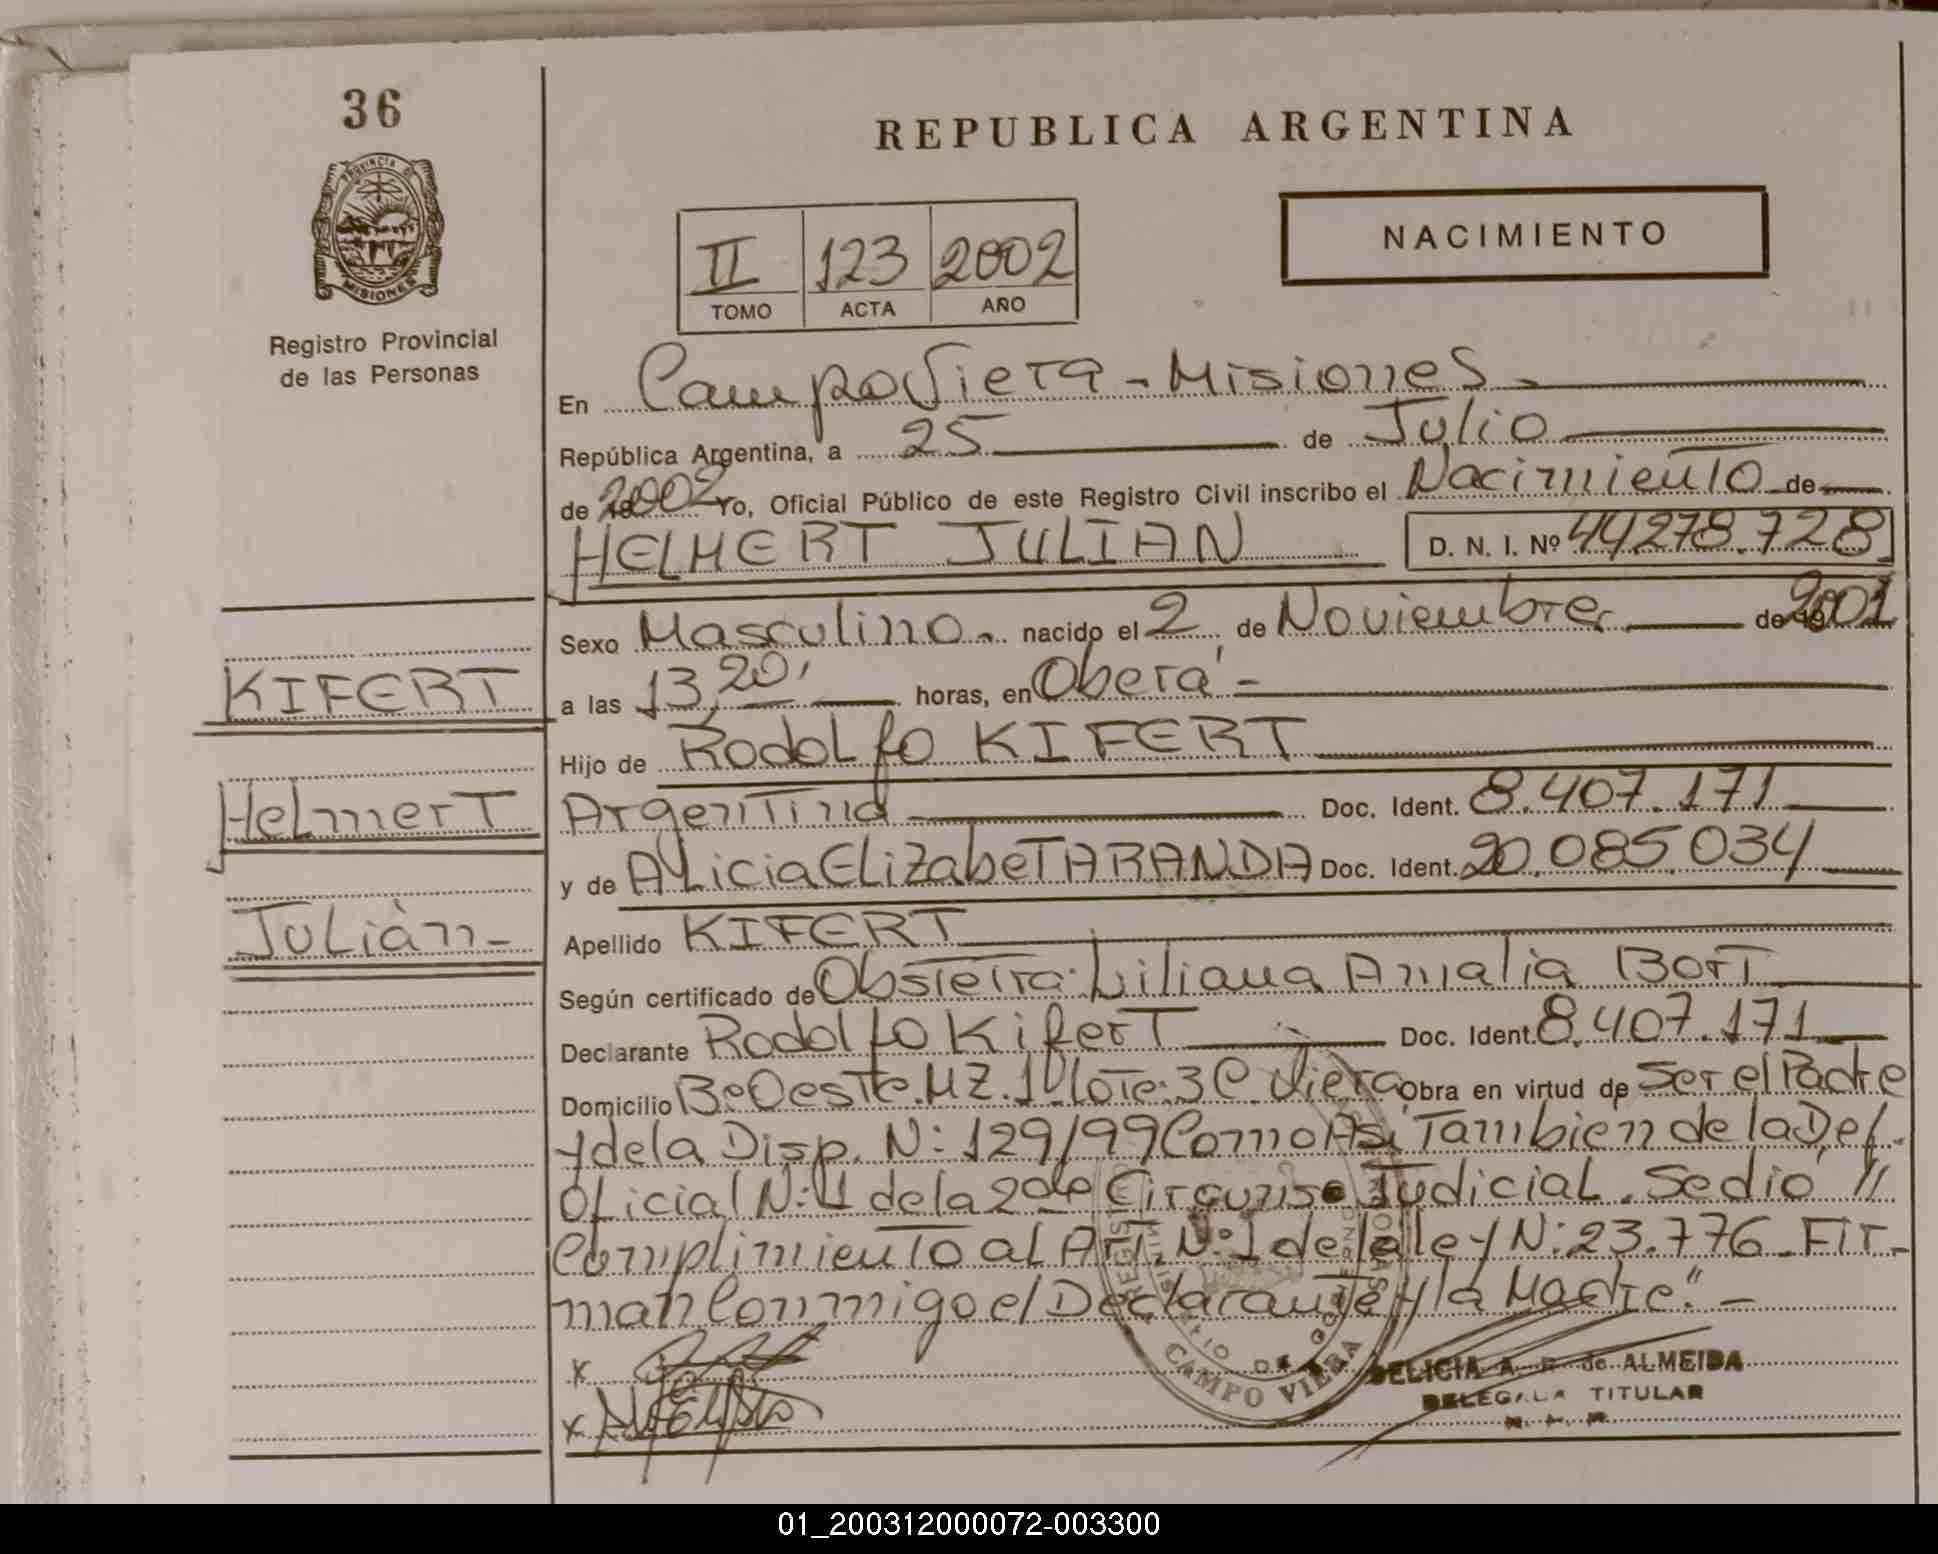 36
REPUBLICA ARGENTINA
PROVINCIA DE
MISIONES
Registro Provincial
de las Personas
II 123 2002
TOMO ACTA AÑO
NACIMIENTO
En Campo Viera - Misiones -
República Argentina, a 25 de Julio
de 2002 Yo, Oficial Público de este Registro Civil inscribo el Nacimiento de
HELMERT JULIAN D. N. I. Nº 44278.728
Sexo Masculino nacido el 2 de Noviembre de 2001
a las 13,20' horas, en Oberá -
Hijo de Rodolfo KIFERT
Argentina Doc. Ident. 8.407.171
y de Alicia Elizabet ARANDA Doc. Ident. 20.085.034
Apellido KIFERT
Según certificado de Obstetra: Liliana Amalia Bort
Declarante Rodolfo Kifert Doc. Ident. 8.407.171
Domicilio Bº Oeste. MZ. 1 Lote: 3 C. Viera Obra en virtud de Ser el Padre
y de la Disp. N: 129/99 Como Asi Tambien de la Def.
Oficial N: 1 de la 2da Circunsc Judicial. Se dió //
Complimiento al Art. Nº 1 de la ley N: 23.776. Fir-
man Conmigo el Declarante y la Madre." -
x
x
KIFERT
Helmert
Julián -
CAMPO VIERA
DELICIA A. de ALMEIDA
DELEGADA TITULAR
01_200312000072-003300